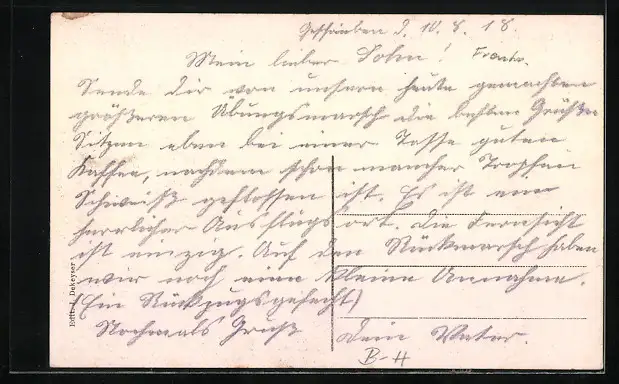 Geschrieben d. 10. 8. 18.
Mein lieber Sohn! Frontr.
Sende dir von unsern heute gemachten
größeren Übungsmarsch die besten Grüße
Sitzen eben bei einer Tasse guten
Kaffee, nachdem schon mancher Tropfen
Schweiß geflossen ist. Es ist ein
herrlicher Ausflugsort. Die Fernsicht
ist einzig. Auf den Rückmarsch haben
wir noch eine kleine Annahme.
(Ein Rückzugsgefecht)
Nochmals Gruß
Dein Vater.
B-H
Edit. J. Dekeyser